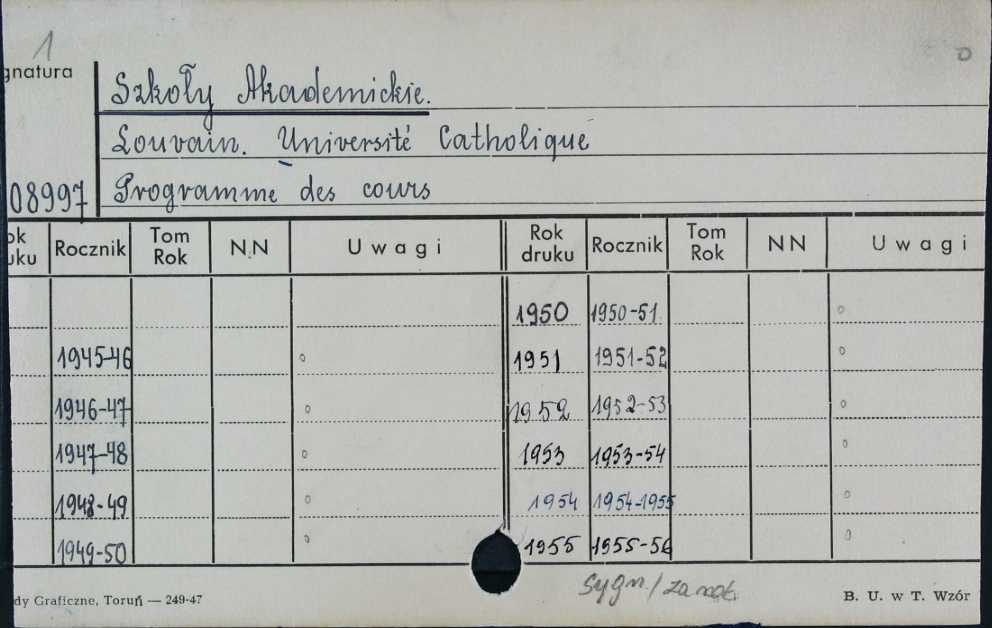 1
gnatura
Szkoły Akademickie.
Louvain. Université Catholique
08997 Programme des cours
ok uku Rocznik Tom Rok N.N Uwagi Rok druku Rocznik Tom Rok NN Uwagi
1950 1950-51
1945-46 1951 1951-52
1946-47 1952 1952-53
1947-48 1953 1953-54
1948-49 1954 1954-1955
1949-50 1955 1955-56
sygn./zanot.
dy Graficzne, Toruń — 249-47 B. U. w T. Wzór